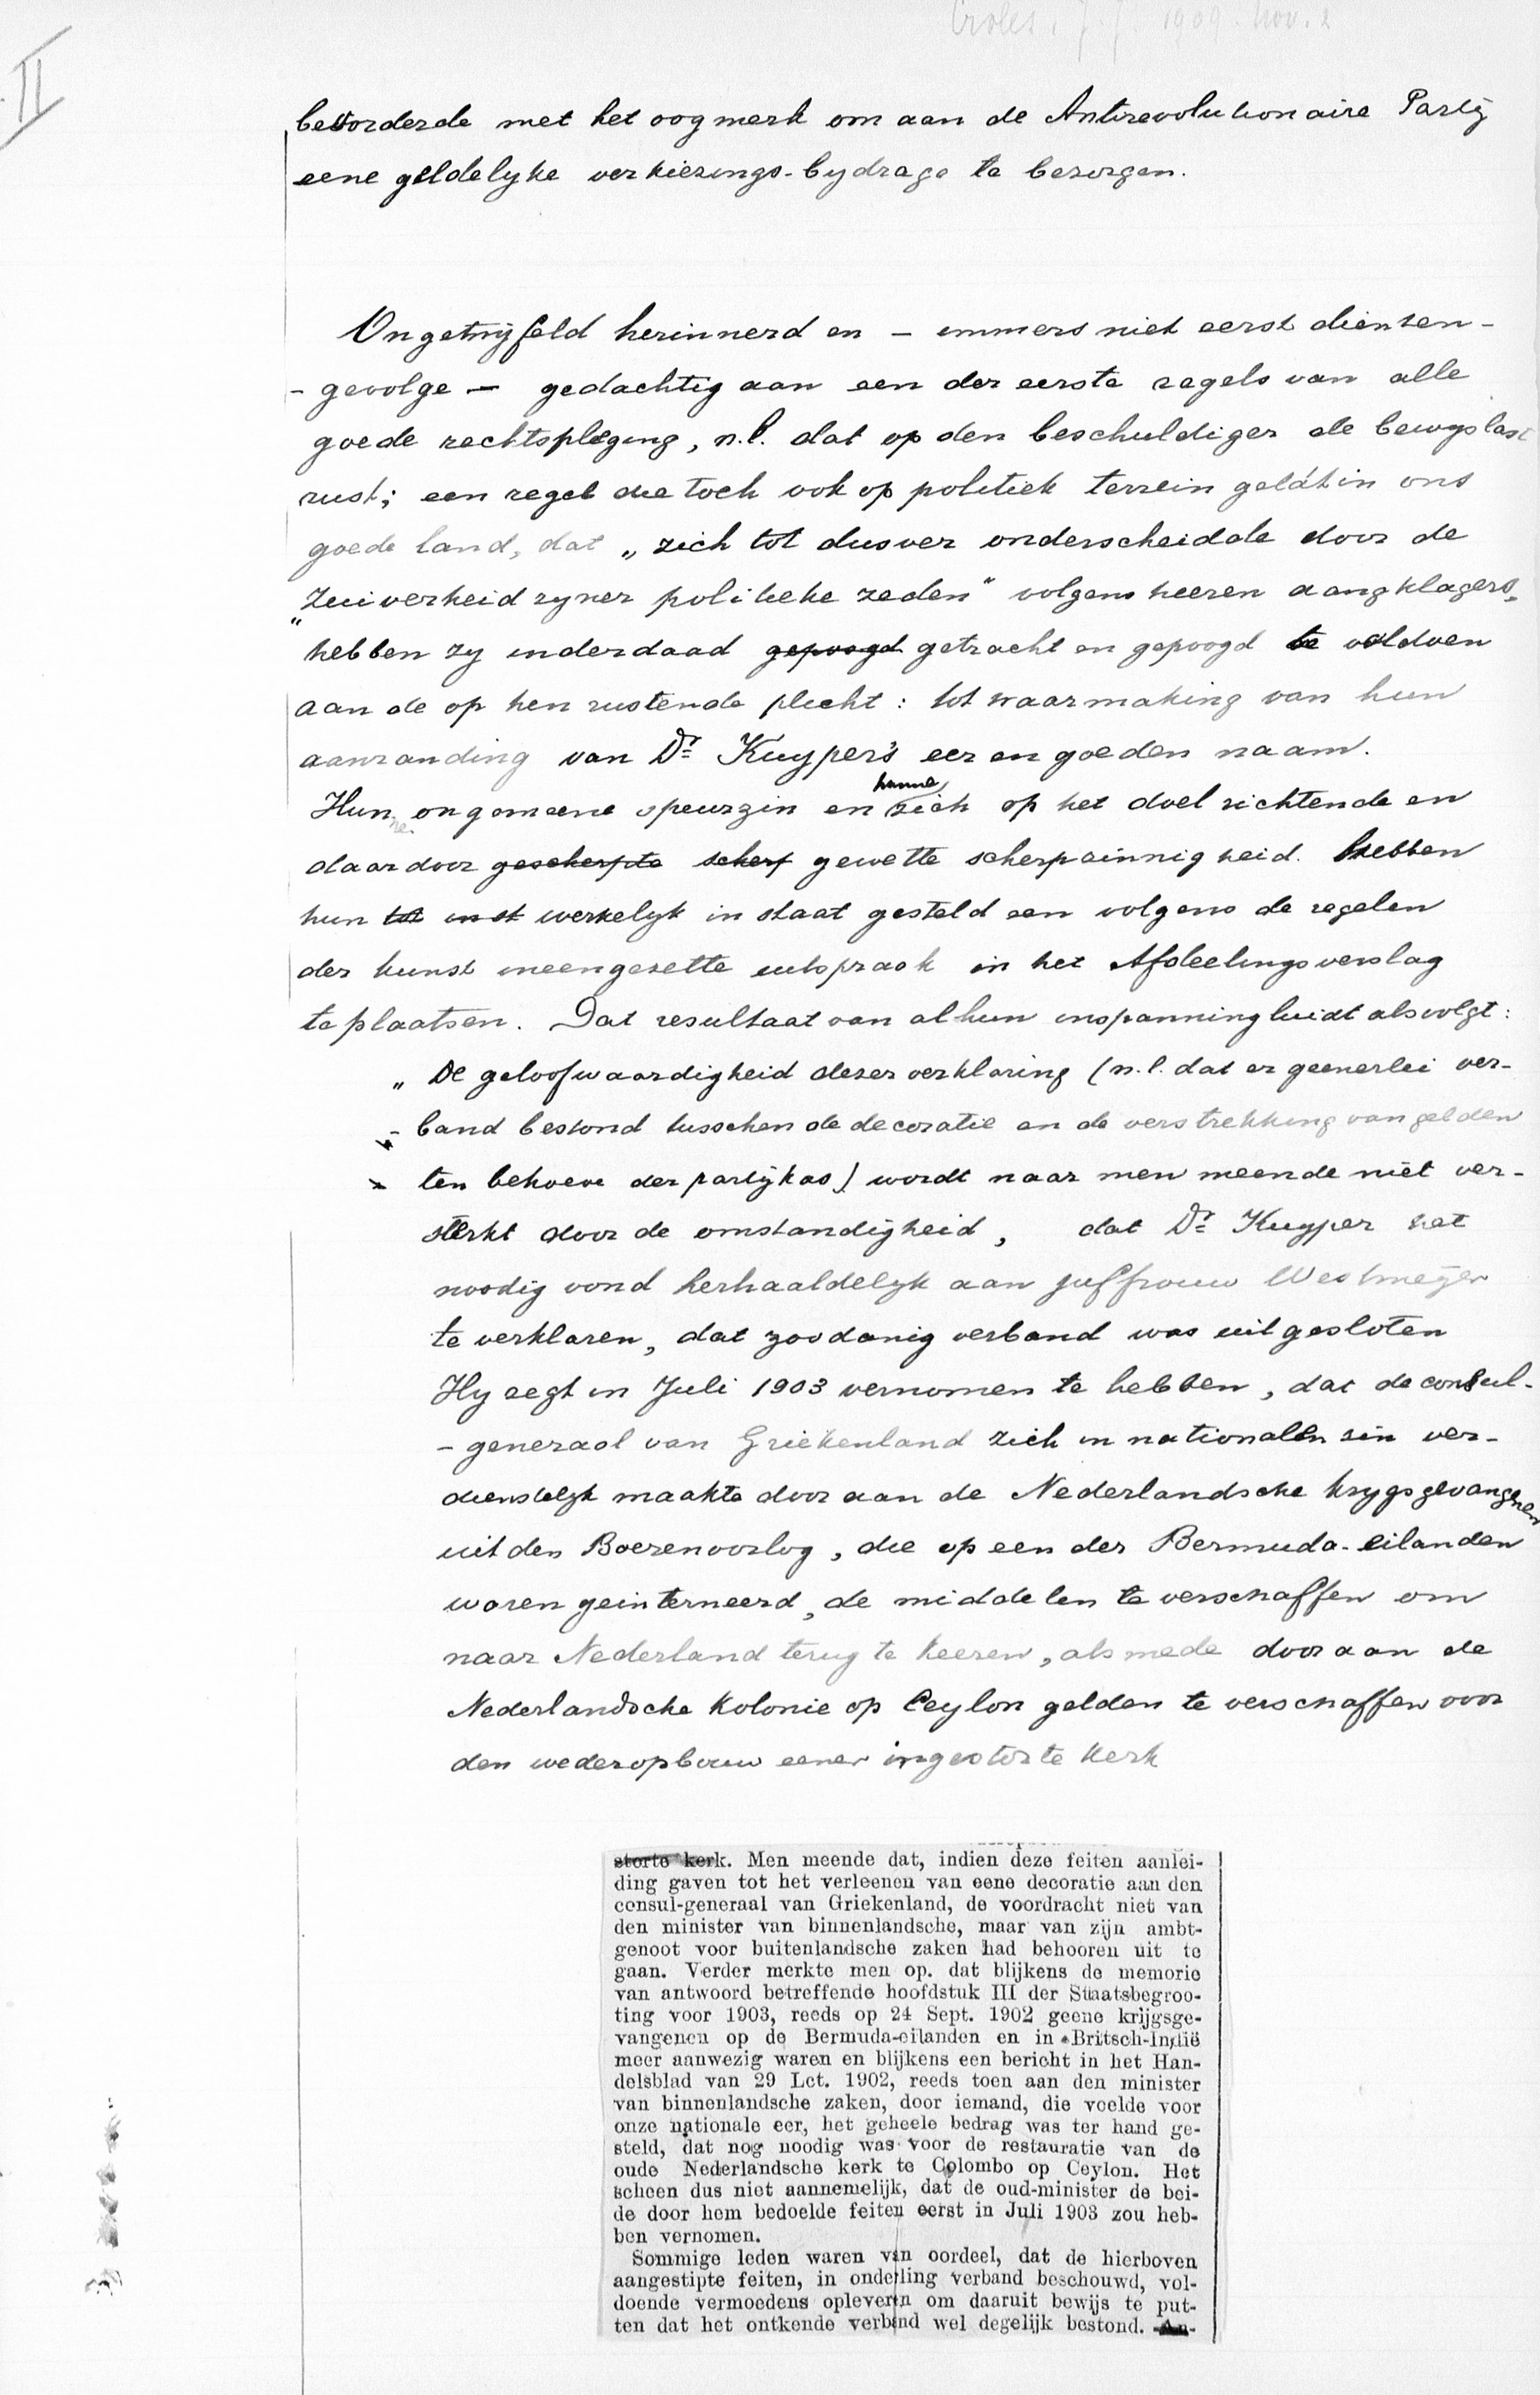 Croles, J. J. 1909. Nov. 2
II
bevorderde met het oogmerk om aan de Antirevolutionaire Partij
eene geldelyke verkiezings-bydrage te bezorgen.
Ongetwijfeld herinnerd en – immers niet eerst dienten-
- gevolge – gedachtig aan een der eerste regels van alle
goede rechtspleging, n.l. dat op den beschuldiger de bewyslast
rust; een regel die toch ook op politiek terrein geldt in ons
goede land, dat „zich tot dusver onderscheidde door de
„zuiverheid zyner politieke zeden" volgens heeren aangklagers,
hebben zy inderdaad gepoogd getracht en gepoogd te voldoen
aan de op hen rustende plicht: tot waarmaking van hun
aanranding van Dr Kuyper's eer en goeden naam.
Hunne ongemeene speurzin en hunne zich op het doel richtende en
daardoor gescherpte scherp gewette scherpzinnigheid. hebben
hun tot in st werkelyk in staat gesteld een volgens de regelen
der kunst ineengezette uitspraak in het Afdeelingsverslag
te plaatsen. Dat resultaat van al hun inspanning luidt als volgt:
„De geloofwaardigheid dezer verklaring (n.l. dat er geenerlei ver-
„- band bestond tusschen de decoratie en de verstrekking van gelden
ten behoeve der partijkas) wordt naar men meende niet ver-
sterkt door de omstandigheid, dat Dr Kuyper het
noodig vond herhaaldelyk aan juffrouw Westmeijer
te verklaren, dat zoodanig verband was uitgesloten
Hy zegt in Juli 1903 vernomen te hebben, dat de consul-
- generaal van Griekenland zich in nationalen zin ver-
dienstelyk maakte door aan de Nederlandsche krygsgevangenen
uit den Boerenoorlog, die op een der Bermuda-eilanden
waren geinterneerd, de middelen te verschaffen om
naar Nederland terug te keeren, alsmede door aan de
Nederlandsche kolonie op Ceylon gelden te verschaffen voor
den wederopbouw eener ingestorte kerk
storte kerk. Men meende dat, indien deze feiten aanlei-
ding gaven tot het verleenen van eene decoratie aan den
consul-generaal van Griekenland, de voordracht niet van
den minister van binnenlandsche, maar van zijn ambt-
genoot voor buitenlandsche zaken had behooren uit te
gaan. Verder merkte men op. dat blijkens de memorie
van antwoord betreffende hoofdstuk III der Staatsbegroo-
ting voor 1903, reeds op 24 Sept. 1902 geene krijgsge-
vangenen op de Bermuda-eilanden en in Britsch-Indië
meer aanwezig waren en blijkens een bericht in het Han-
delsblad van 29 Lct. 1902, reeds toen aan den minister
van binnenlandsche zaken, door iemand, die voelde voor
onze nationale eer, het geheele bedrag was ter hand ge-
steld, dat nog noodig was voor de restauratie van de
oude Nederlandsche kerk te Colombo op Ceylon. Het
scheen dus niet aannemelijk, dat de oud-minister de bei-
de door hem bedoelde feiten eerst in Juli 1903 zou heb-
ben vernomen.
Sommige leden waren van oordeel, dat de hierboven
aangestipte feiten, in onderling verband beschouwd, vol-
doende vermoedens opleveren om daaruit bewijs te put-
ten dat het ontkende verband wel degelijk bestond. An-